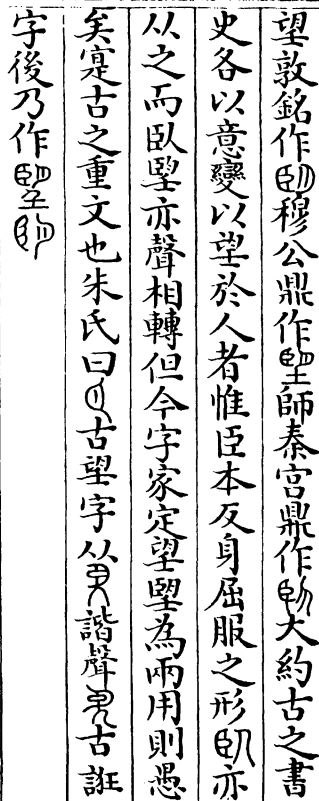 望敦銘作穆公鼎作師秦宮鼎作大約古之書
史各以意變以望於人者惟臣本反身屈服之形亦
从之而臥朢亦聲相轉但今字家定望朢為兩用則愚
矣寔古之重文也朱氏曰古望字从諧聲古誑
字後乃作